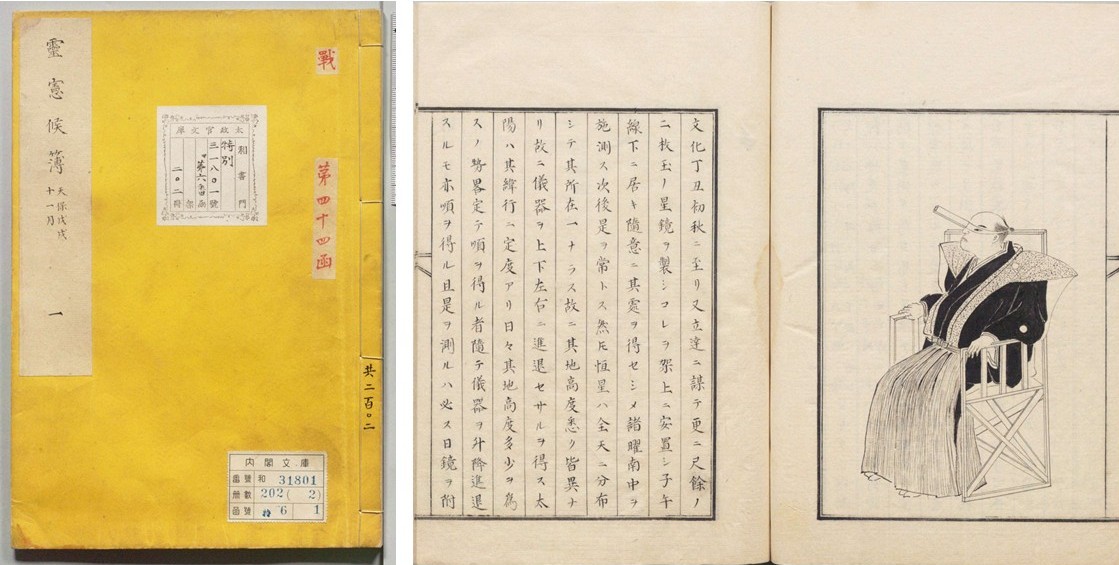 靈憲候簿
天保戊戌
十一月
一
戰
第四十四函
太政官文庫
和書門
特別
三一八〇一號
第六函
二〇二冊
共二百〇二
内閣文庫
番號 和 31801
冊數 202 ( 2 )
函號 特 6 1
文化丁丑初秋ニ至リ又立達ニ謀テ更ニ尺餘ノ
二枚玉ノ星鏡ヲ製シコレヲ架上ニ安置シ子午
線下ニ居キ隨意ニ其處ヲ得セシメ諸曜南中ヲ
施測ス次後是ヲ常トス然𪜈恒星ハ全天ニ分布
シテ其所在一ナラス故ニ其地高度悉ク皆異ナ
リ故ニ儀器ヲ上下左右ニ進退セサルヲ得ス太
陽ハ其緯行ニ定度アリ日々其地高度多少ヲ為
スノ畧定テ順ヲ得ル者隨テ儀器ヲ升降進退
スルモ亦順ヲ得ル且是ヲ測ルハ必ス日鏡ヲ附